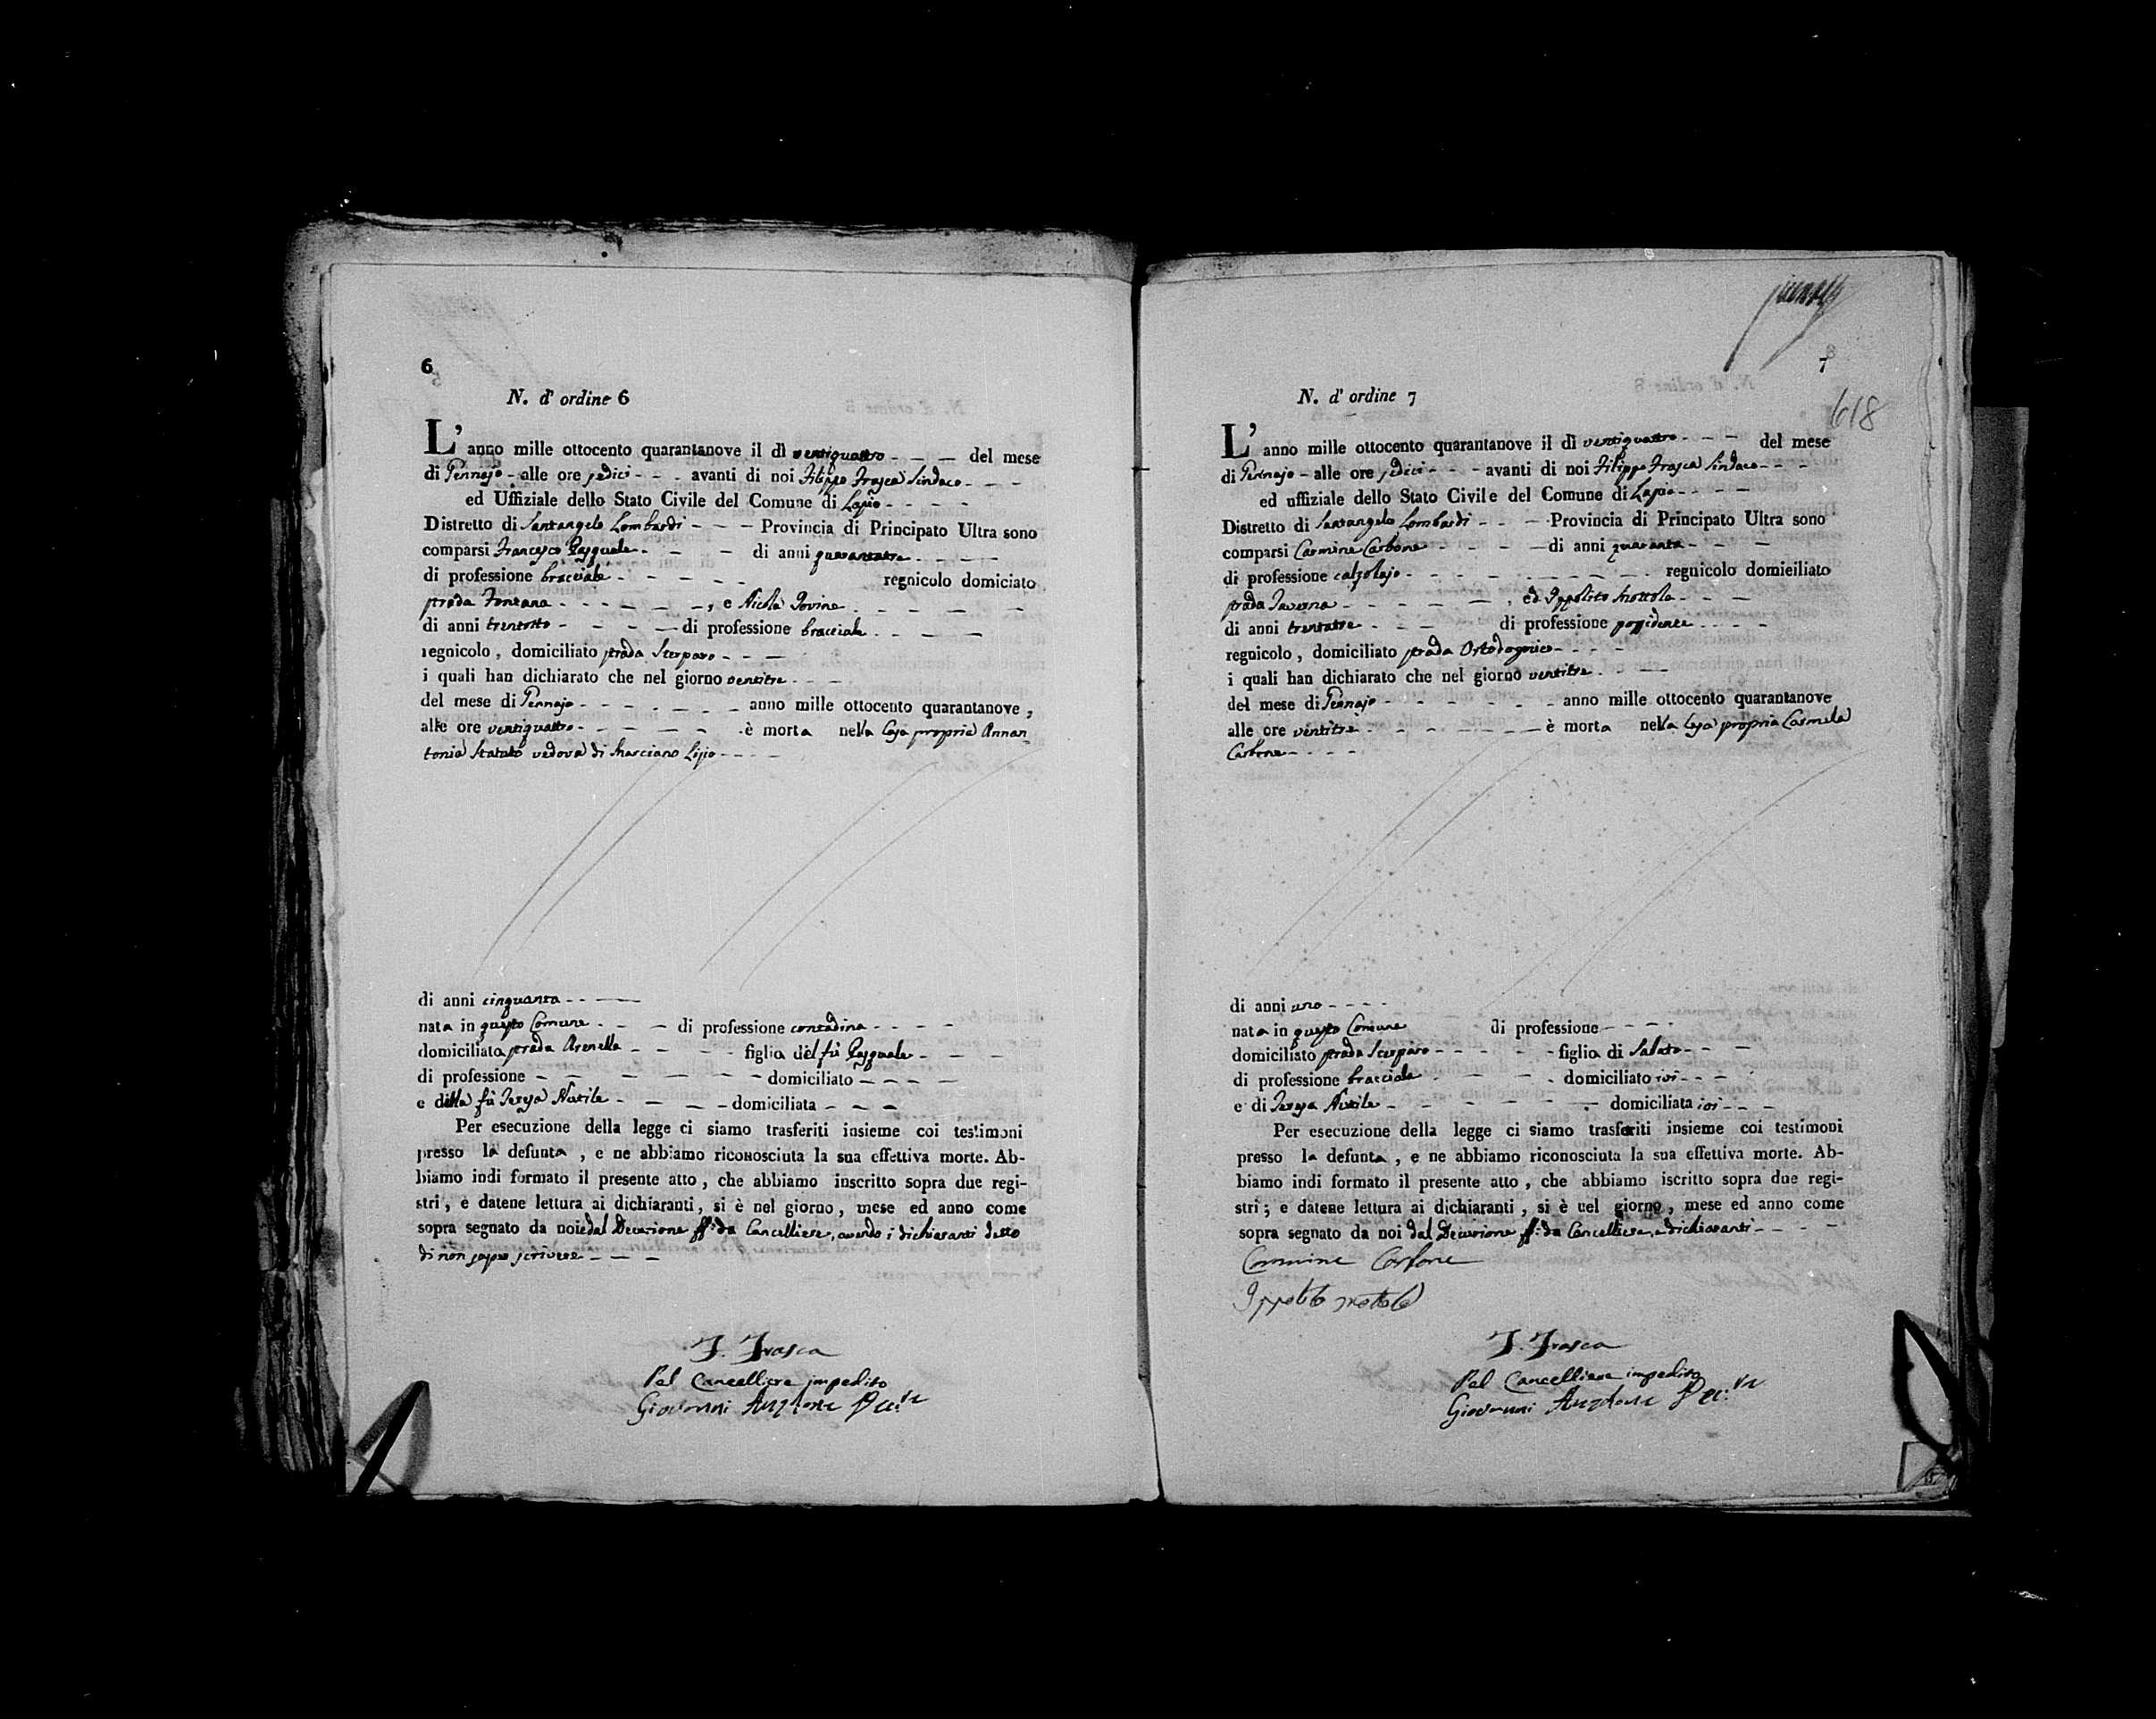 6
N. d' ordine 6
L' anno mille ottocento quarantanove il dì ventiquattro del mese
di Gennajo alle ore sedici avanti di noi Filippo Frasca Sindaco
ed Uffiziale dello Stato Civile del Comune di Lapio
Distretto di Santangelo Lombardi Provincia di Principato Ultra sono
comparsi Francesco Pasquale di anni quarantatre
di professione bracciale regnicolo domiciato
strada Fontana , e Nicola Iovine
di anni trentotto di professione bracciale
regnicolo , domiciliato strada Scarparo
i quali han dichiarato che nel giorno ventitre
del mese di Gennajo anno mille ottocento quarantanove ,
alle ore ventiquattro è morta nella Casa propria Annan
tonia Statuto vedova di Lipio
di anni cinquanta
nata in questo Comune di professione contadina
domiciliata strada Arenella figlia del fù Pasquale
di professione domiciliato
e della fù Teresa Nutile domiciliata
Per esecuzione della legge ci siamo trasferiti insieme coi testimoni
presso la defunta , e ne abbiamo riconosciuta la sua effettiva morte. Ab-
biamo indi formato il presente atto , che abbiamo inscritto sopra due regi-
stri , e datene lettura ai dichiaranti , si è nel giorno , mese ed anno come
sopra segnato da noi e dal Decurione ff: da Cancelliere, avendo i dichiaranti detto
di non saper scrivere
F. Frasca
Pel Cancelliere impedito
Giovanni Anzalone
7
618
N. d' ordine 7
L' anno mille ottocento quarantanove il dì ventiquattro del mese
di Gennajo alle ore sedici avanti di noi Filippo Frasca Sindaco
ed uffiziale dello Stato Civile del Comune di Lapio
Distretto di Santangelo Lombardi Provincia di Principato Ultra sono
comparsi Carmine Carbone di anni quaranta
di professione calzolajo regnicolo domieiliato
strada Taverna , ed Ippolito Mottola
di anni trentatre di professione possidente
regnicolo , domiciliato strada
i quali han dichiarato che nel giorno ventitre
del mese di Gennajo anno mille ottocento quarantanove
alle ore ventitrè è morta nella Casa propria Carmela
Carbone
di anni uno
nata in questo Comune di professione
domiciliato strada Scarparo figlia di Sabato
di professione bracciale domiciliato ivi
e di Teresa Nutile domiciliata ivi
Per esecuzione della legge ci siamo trasferiti insieme coi testimoni
presso la defunta , e ne abbiamo riconosciuta la sua effettiva morte. Ab-
biamo indi formato il presente atto , che abbiamo iscritto sopra due regi-
stri ; e datene lettura ai dichiaranti , si è nel giorno , mese ed anno come
sopra segnato da noi dal Decurione ff: da Cancelliere, e dichiaranti
Carmine Carbone
Ippolito Mottola
F. Frasca
Pel Cancelliere impedito
Giovanni Anzalone